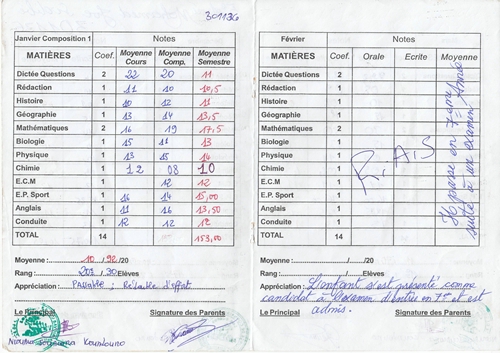 301136
Janvier Composition 1 Notes
MATIÈRES Coef. Moyenne Cours Moyenne Comp. Moyenne Semestre
Dictée Questions 2 22 20 11
Rédaction 1 11 10 10,5
Histoire 1 10 12 11
Géographie 1 13 14 13,5
Mathématiques 2 16 19 17,5
Biologie 1 13 13
Physique 1 13 15 14
Chimie 1 12 08 10
E.C.M 1 12 12
E.P. Sport 1 16 14 15,00
Anglais 1 11 16 13,50
Conduite 1 12 12 12
TOTAL 14 153,00
Moyenne : 10,92/20
Rang : /30 Elèves
Appréciation : Passable ; d'effort
Le Principal Signature des Parents
Kourouno
Février Notes
MATIÈRES Coef. Orale Ecrite Moyenne
Dictée Questions 2
Rédaction 1
Histoire 1
Géographie 1
Mathématiques 2
Biologie 1
Physique 1
Chimie 1
E.C.M 1
E.P. Sport 1
Anglais 1
Conduite 1
TOTAL 14
R.A.S
passe en 7eme Année
suite à un examen
Moyenne : /20
Rang : Elèves
Appréciation : L'enfant s'est présenté comme
candidat à l'examen d'entrée en 7e et est
admis.
Le Principal Signature des Parents